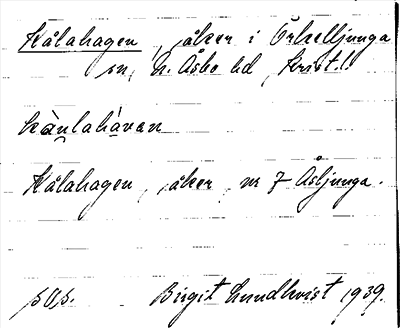 Kålahagen, åker i Örkelljunga
sn, N. Åsbo hd, Krist. l.
Kålahagen, åker, nr 7 Åsljunga.
Birgit Lundkvist 1939.